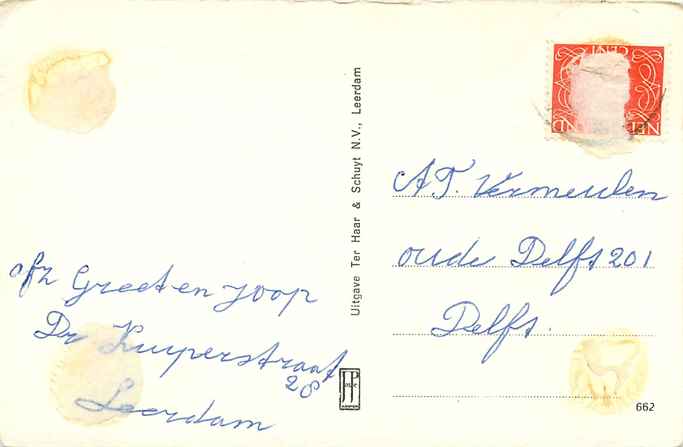 afz Greet en Joop
Dr Kuyperstraat
28
Leerdam
Uitgave Ter Haar & Schuyt N.V., Leerdam
CENT
NE
ND
A.T. Vermeulen
oude Delft 201
Delft.
662